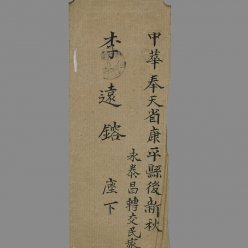 中華奉天省康平縣後新秋
永泰昌轉交民
李遠鎔 座下